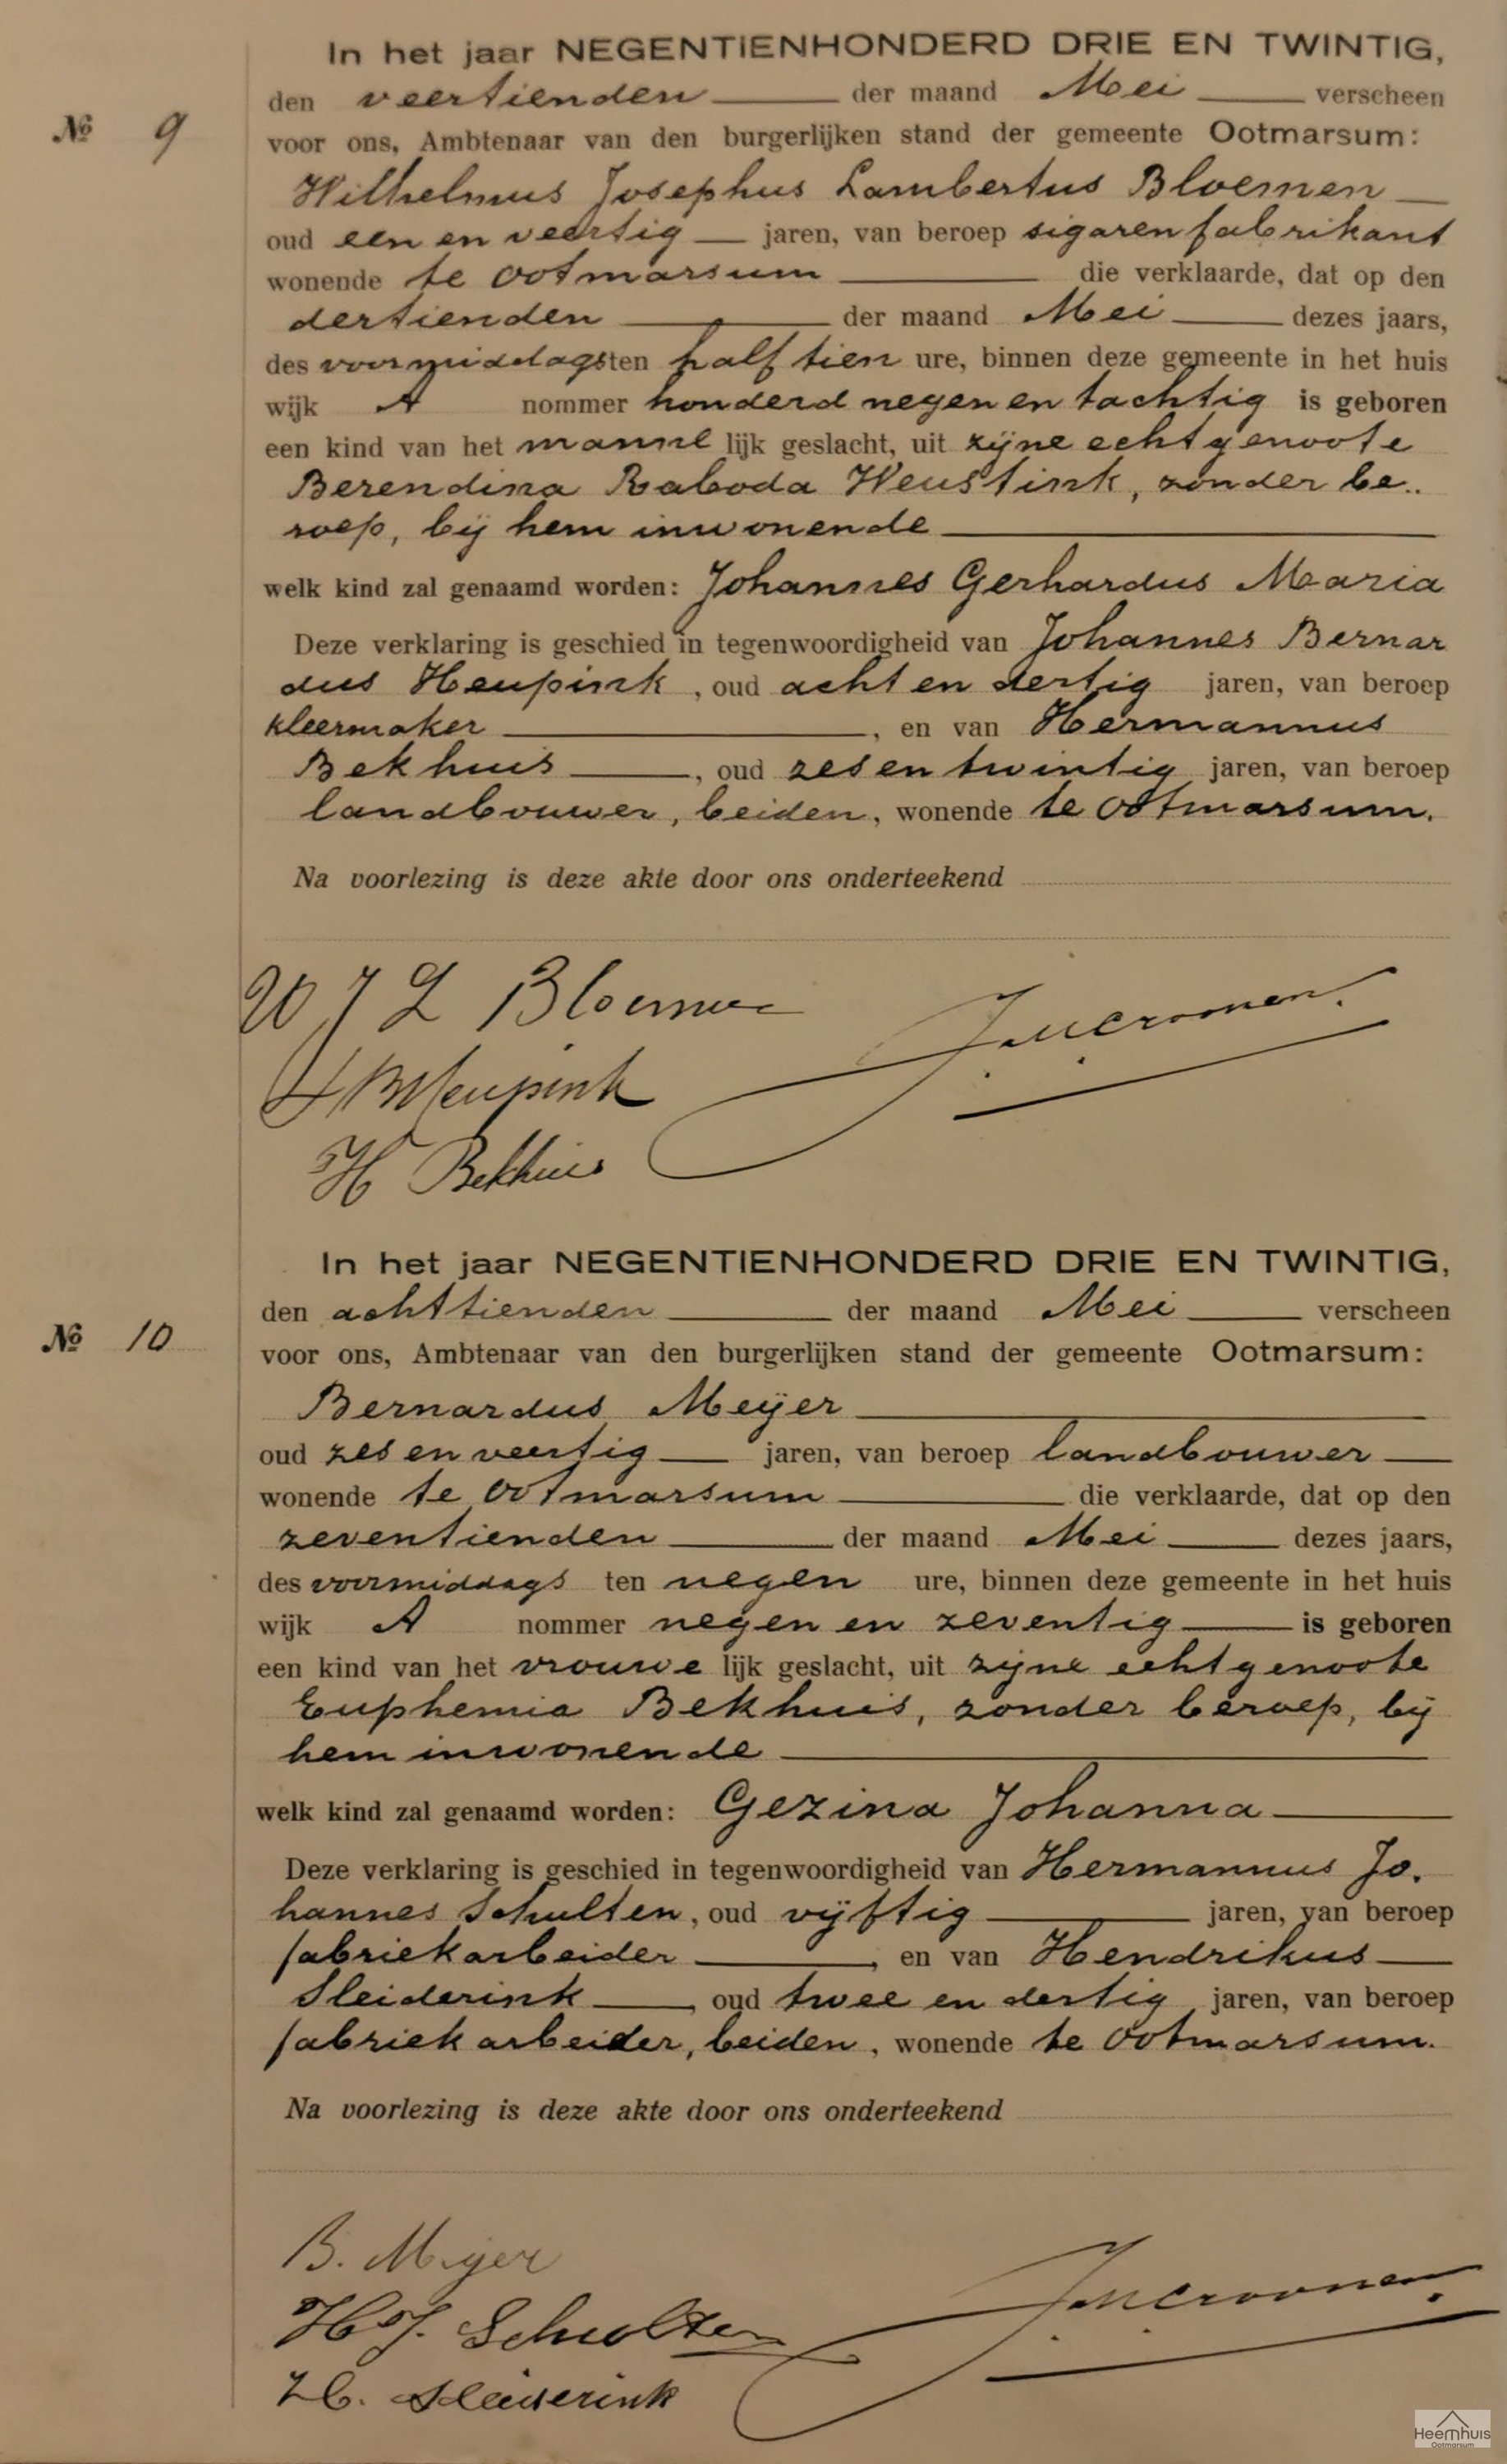 In het jaar NEGENTIENHONDERD DRIE EN TWINTIG,
den veertienden der maand Mei verscheen
№ 9
voor ons, Ambtenaar van den burgerlijken stand der gemeente Ootmarsum:
Wilhelmus Josephus Lambertus Bloemen
oud een en veertig jaren, van beroep sigarenfabrikant
wonende te Ootmarsum die verklaarde, dat op den
dertienden der maand Mei dezes jaars,
des voormiddags ten half tien ure, binnen deze gemeente in het huis
wijk A nommer honderd negen en tachtig is geboren
een kind van het manne lijk geslacht, uit zijne echtgenoote
Berendina Raboda Weustink, zonder be..
roep, bij hem inwonende
welk kind zal genaamd worden: Johannes Gerhardus Maria
Deze verklaring is geschied in tegenwoordigheid van Johannes Bernar
dus Heupink, oud acht en dertig jaren, van beroep
kleermaker, en van Hermannus
Bekhuis, oud zes en twintig jaren, van beroep
landbouwer, beiden, wonende te Ootmarsum.
Na voorlezing is deze akte door ons onderteekend
W J L Bloemen
J B Heupink
H Bekhuis
In het jaar NEGENTIENHONDERD DRIE EN TWINTIG,
den achttienden der maand Mei verscheen
№ 10
voor ons, Ambtenaar van den burgerlijken stand der gemeente Ootmarsum:
Bernardus Meijer
oud zes en veertig jaren, van beroep landbouwer
wonende te Ootmarsum die verklaarde, dat op den
zeventienden der maand Mei dezes jaars,
des voormiddags ten negen ure, binnen deze gemeente in het huis
wijk A nommer negen en zeventig is geboren
een kind van het vrouwe lijk geslacht, uit zijne echtgenoote
Euphemia Bekhuis, zonder beroep, bij
hem inwonende
welk kind zal genaamd worden: Gezina Johanna
Deze verklaring is geschied in tegenwoordigheid van Hermannus Jo.
hannes Schulten, oud vijftig jaren, van beroep
fabriekarbeider, en van Hendrikus
Sleiderink, oud twee en dertig jaren, van beroep
fabriekarbeider, beiden, wonende te Ootmarsum.
Na voorlezing is deze akte door ons onderteekend
B. Meijer
H J. Scholten
H. Sleiderink
Heemhuis
Ootmarsum